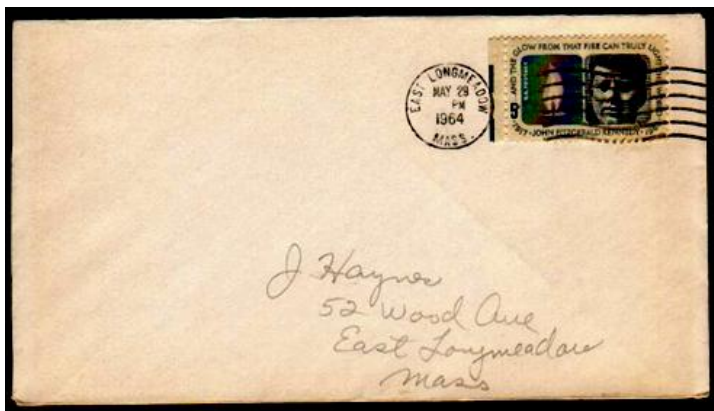 EAST LONGMEADOW
MAY 29
PM
1964
MASS.
AND THE GLOW FROM THAT FIRE CAN TRULY LIGHT
U.S. POSTAGE
5
JOHN FITZGERALD KENNEDY
J Haynes
52 Wood Ave
East Longmeadow
Mass